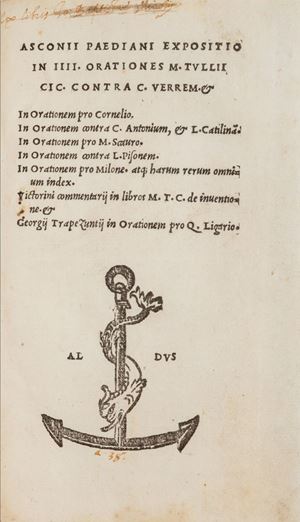 Ex libris
ASCONII PAEDIANI EXPOSITIO
IN IIII. ORATIONES M. TVLLII
CIC. CONTRA C. VERREM. &
In Orationem pro Cornelio.
In Orationem contra C. Antonium, & L. Catilinā.
In Orationem pro M. Scauro.
In Orationem contra L. Pisonem.
In Orationem pro Milone. atq; harum rerum omni
um index.
Victorini commentarij in libros M. T. C. de inuentio
ne. &
Georgij Trapezuntij in Orationem pro Q. Ligario.
AL DVS